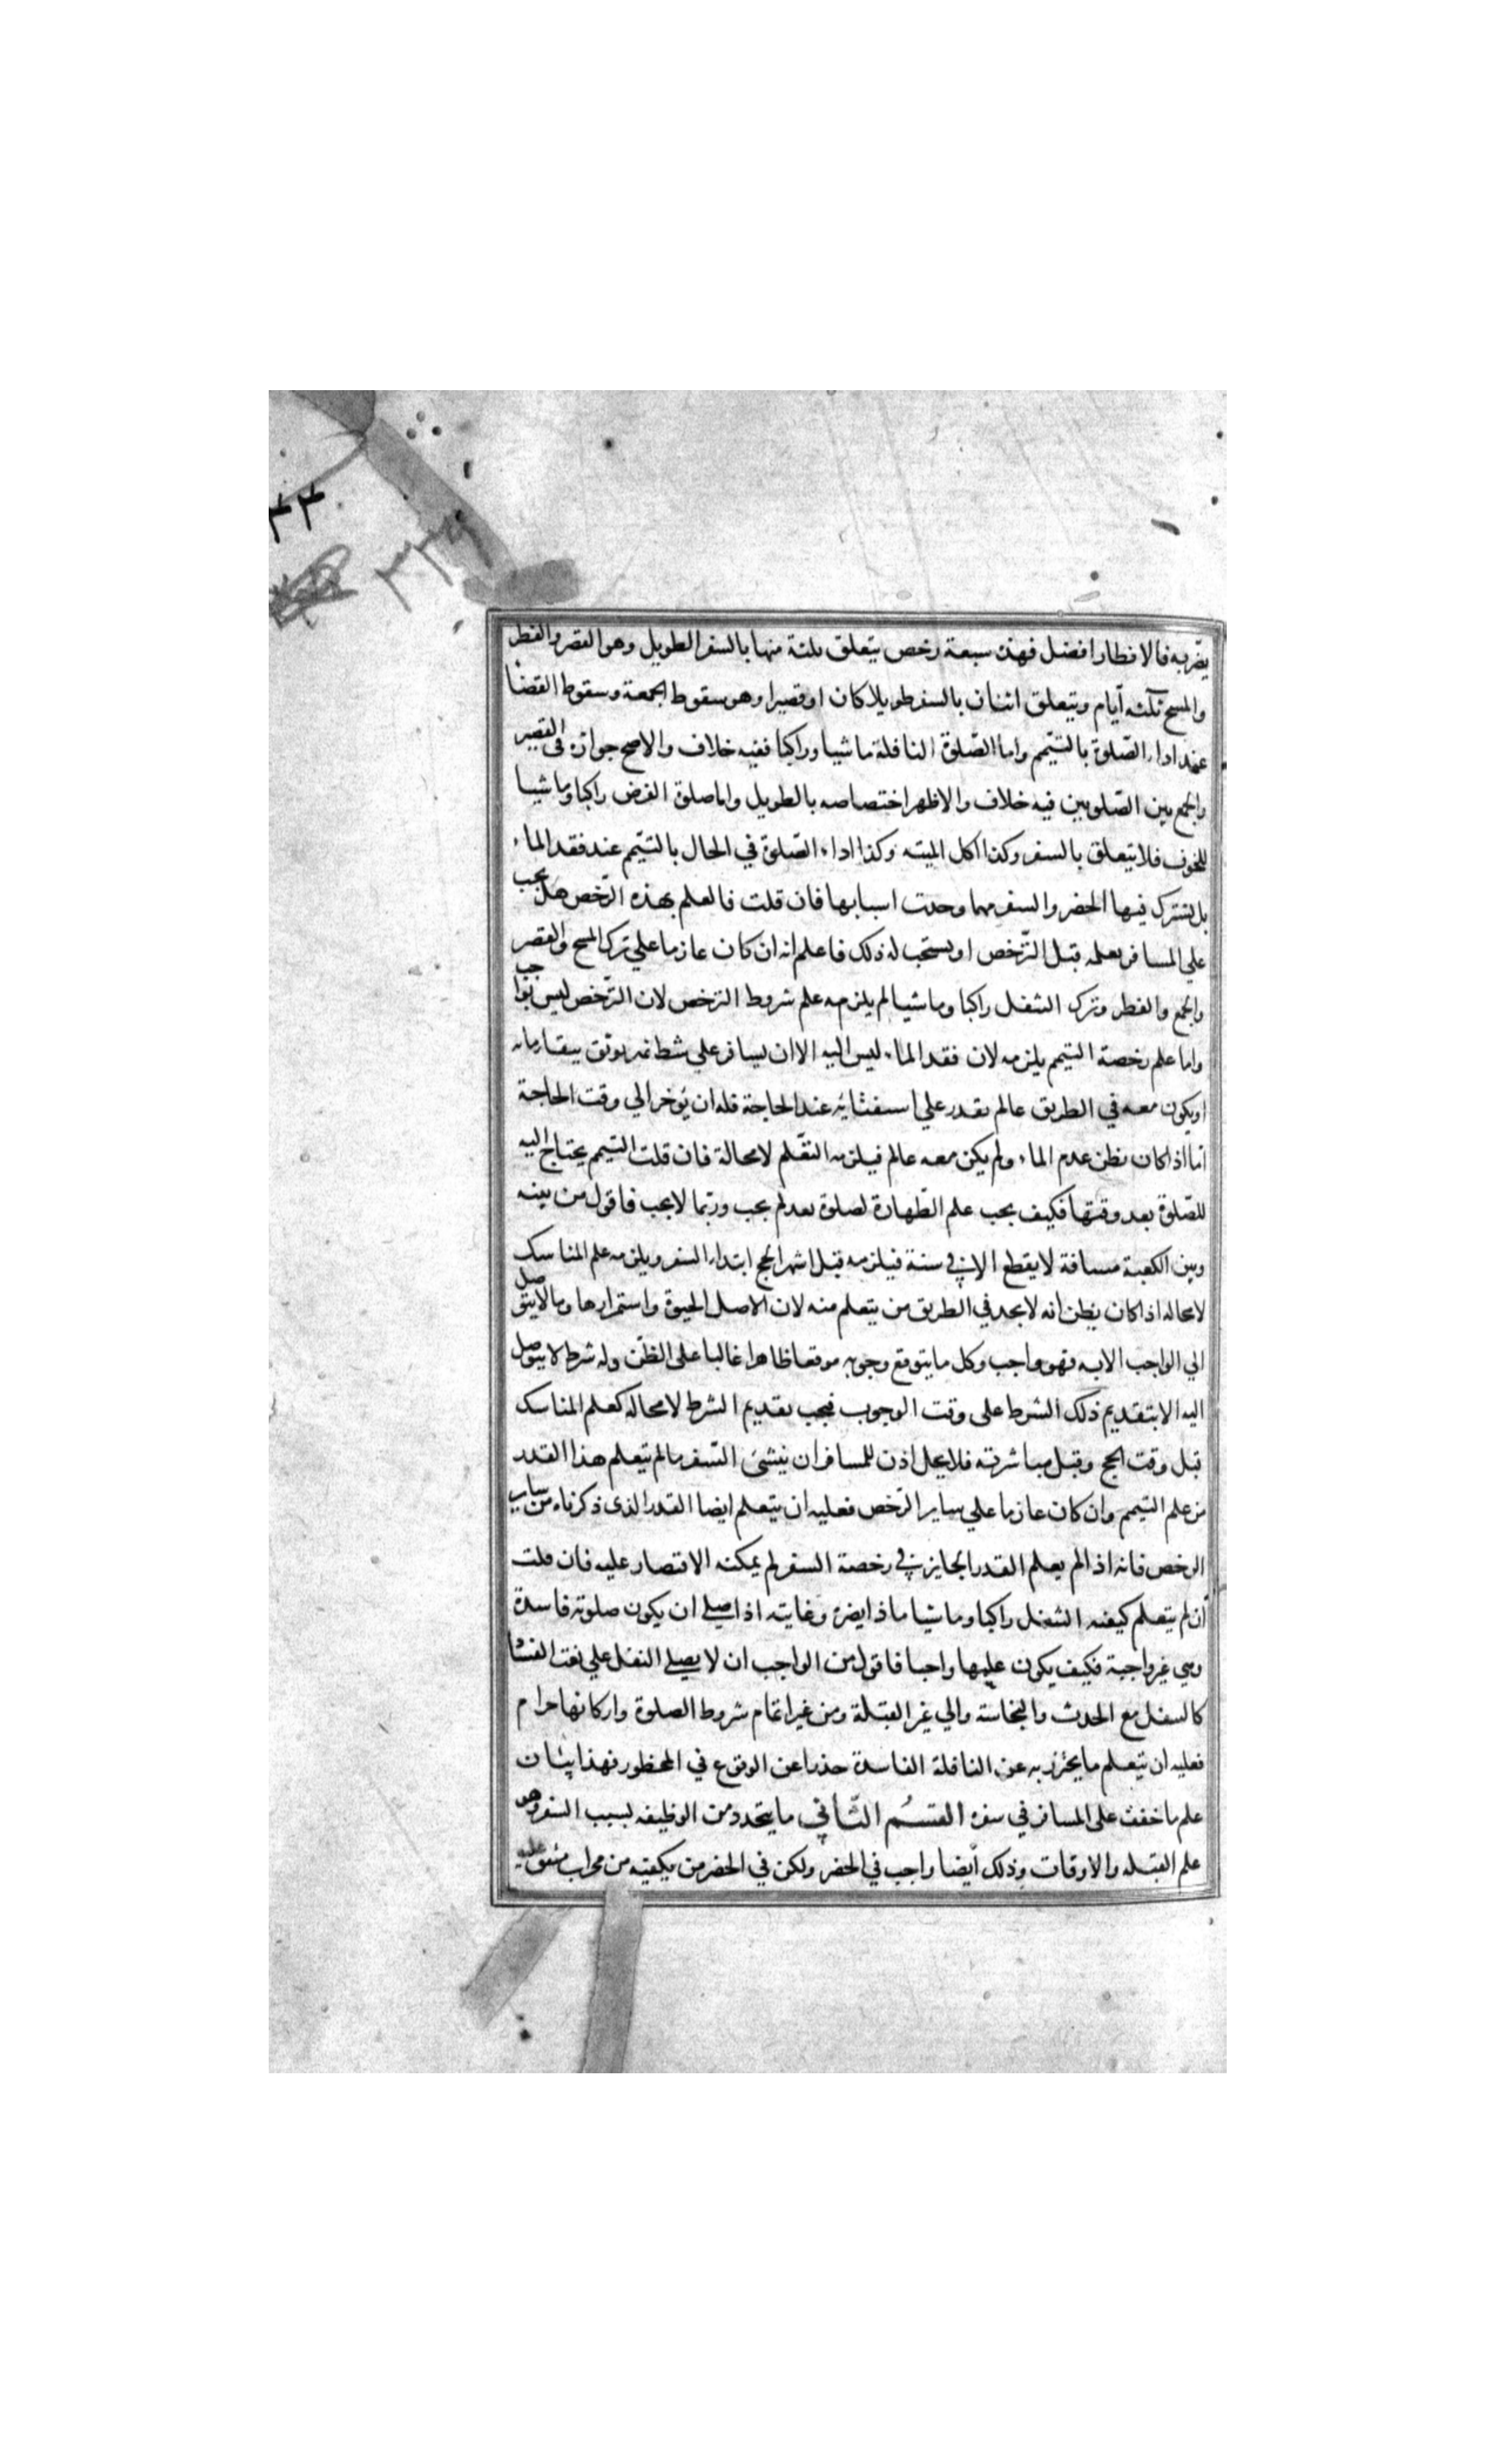 ٣٤
٣٣٤
يضر به فالافطار افضل فهذه سبعة رخص يتعلق ثلثة منها بالسفر الطويل وهو القصر والفطر
والمسح ثلثه ايام ويتعلق اثنان بالسفر طويلا كان او قصيرا وهو سقوط الجمعة وسقوط القضا
عند اداء الصّلوة بالتيّمم واما الصّلوة النافلة ماشيا وراكبا ففيه خلاف والاصح جوازه فى القصير
والجمع بين الصّلوتين فيه خلاف والاظهر اختصاصه بالطويل واما صلوة الفرض راكبا وماشيا
للخوف فلا يتعلق بالسفر وكذا اكل الميته وكذا اداء الصّلوة في الحال بالتيّمم عند فقد الماء
بل يشترك فيها الحضر والسفر مهما وجدت اسبابها فان قلت فالعلم بهذه الرّخص هل يجب
علي المسافر تعلمه قبل الترّخص او يستحب له ذلك فاعلم انه ان كان عازما علي ترك المسح والقصر
والجمع والفطر وترك التنفل راكبا وماشيا لم يلزمه علم شروط الترخص لان الترّخص ليس بواجب
واما علم رخصة التيمم يلزمه لان فقد الماء ليس اليه الا ان يسافر علي شط نهر يوثق ببقاء مائه
او يكون معه في الطريق عالم يقدر علي استفتائه عند الحاجة فله ان يؤخر الي وقت الحاجة
امّا اذا كان يظن عدم الماء ولم يكن معه عالم فيلزمه التعّلم لا محالة فان قلت التيمم يحتاج اليه
للصّلوة بعد وقتها فكيف يجب علم الطّهارة لصلوة بعد لم يجب وربّما لا يجب فاقول من بينه
وبين الكعبة مسافة لا يقطع الا في سنة فيلزمه قبل اشهر الحج ابتداء السفر ويلزمه علم المناسك
لا محاله اذا كان يظن انه لا يجد في الطريق من يتعلم منه لان الاصل الحيوة واستمرارها وما لا يتوصل
الي الواجب الا به فهو واجب وكل ما يتوقع وجوبه موقعا ظاهرا غالبا على الظنّ وله شرط لا يتوصل
اليه الا بتقديم ذلك الشرط على وقت الوجوب فيجب تقديم الشرط لا محاله كعلم المناسك
قبل وقت الحج وقبل مباشرته فلا يحل اذن للمسافر ان ينشئ السّفر مالم يتعلم هذا القدر
من علم التيمم وان كان عازما علي ساير الرّخص فعليه ان يتعلم ايضا القدر الذى ذكرناه من ساير
الرخص فانه اذا لم يعلم القدر الجايز في رخصة السفر لم يمكنه الاقتصار عليه فان قلت
ان لم يتعلم كيفيه التنفل راكبا وماشيا ماذا يضره وغايته اذا صلي ان يكون صلوته فاسدة
وهي غير واجبة فكيف يكون علمها واجبا فاقول من الواجب ان لا يصلي النفل علي نعت الفساد
كالتنفل مع الحدث والنجاسة والي غير القبلة ومن غير اتمام شروط الصلوة واركانها حرام
فعليه ان يتعلم ما يحترز به عن النافلة الفاسدة حذرا عن الوقوع في المحظور فهذا بيان
علم ما خفف على المسافر في سفره القسم الثّاني ما يتجدد من الوظيفه بسبب السفر وهو
علم القبله والاوقات وذلك أيضا واجب في الحضر ولكن في الحضر من يكفيه من محراب متفق عليه